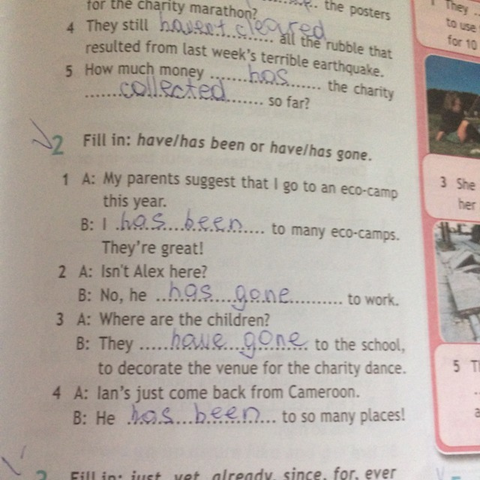 for the charity marathon? the posters
4 They still havent cleared all the rubble that
resulted from last week's terrible earthquake.
5 How much money ........has...... the charity
......collected........ so far?
2 Fill in: have/has been or have/has gone.
1 A: My parents suggest that I go to an eco-camp
this year.
B: I .has...been.... to many eco-camps.
They're great!
2 A: Isn't Alex here?
B: No, he ..has...gone.......... to work.
3 A: Where are the children?
B: They .....have...gone.. to the school,
to decorate the venue for the charity dance.
4 A: Ian's just come back from Cameroon.
B: He .has...been.... to so many places!
Fill in: just, yet, already, since, for, ever
1 They ..
to use
for 10
3 She
her
5